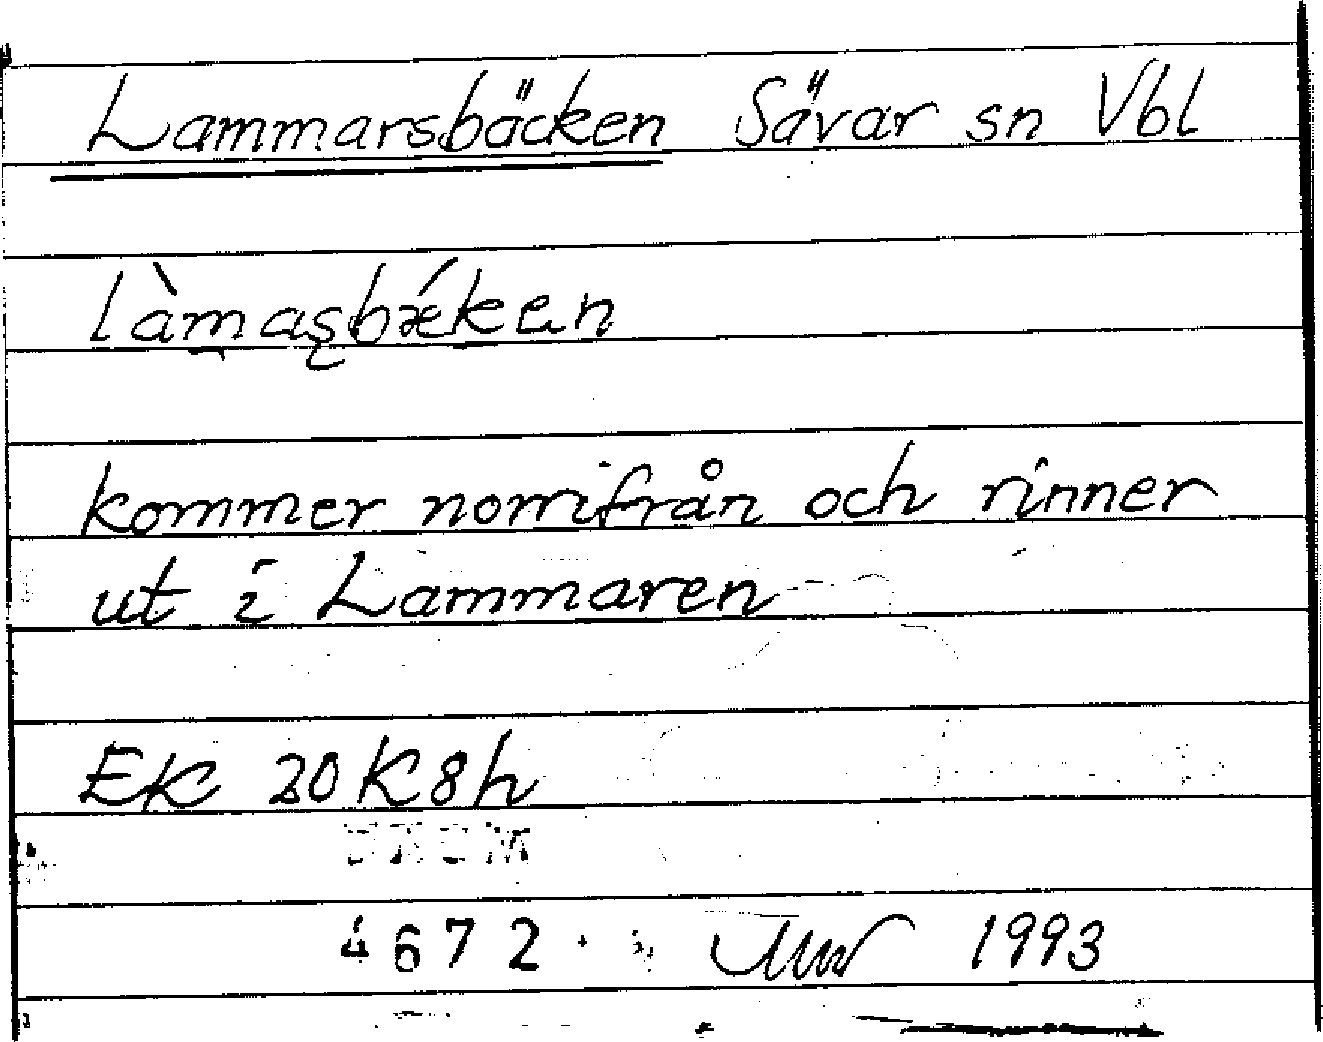 Lammarsbäcken Sävar sn Vbl
làmasbǽken
kommer norrifrån och rinner
ut i Lammaren
EK 20K8h
4672 1993